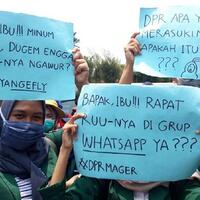 IBU!!! MINUM
DUGEM ENGGA
-NYA NGAWUR?
YANGEFLY
DPR APA Y
MERASUKI
APAKAH ITU
???
BAPAK, IBU!!! RAPAT
RUU-NYA DI GRUP
WHATSAPP YA???
#DPRMAGER